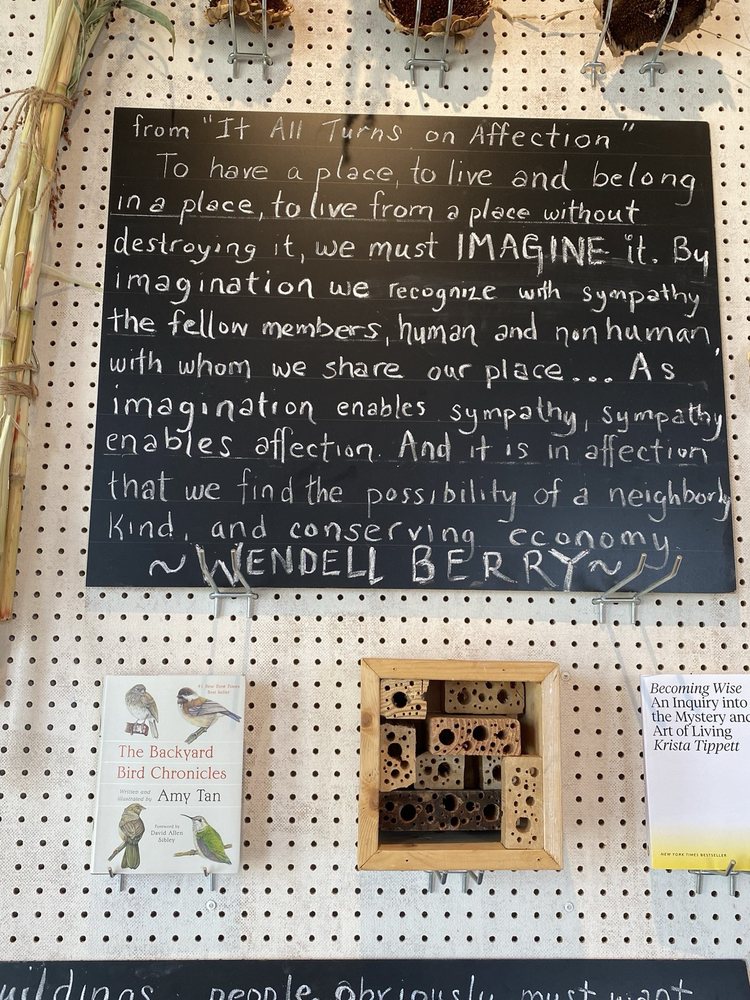 from "It All Turns on Affection"
To have a place, to live and belong
in a place, to live from a place without
destroying it, we must IMAGINE it. By
imagination we recognize with sympathy
the fellow members, human and nonhuman,
with whom we share our place... As
imagination enables sympathy, sympathy
enables affection. And it is in affection
that we find the possibility of a neighborly
kind, and conserving economy
~WENDELL BERRY~
#1 New York Times
Best Seller
The Backyard
Bird Chronicles
Written and
illustrated by Amy Tan
Foreword by
David Allen
Sibley
Becoming Wise
An Inquiry into
the Mystery and
Art of Living
Krista Tippett
NEW YORK TIMES BESTSELLER
people obviously must want